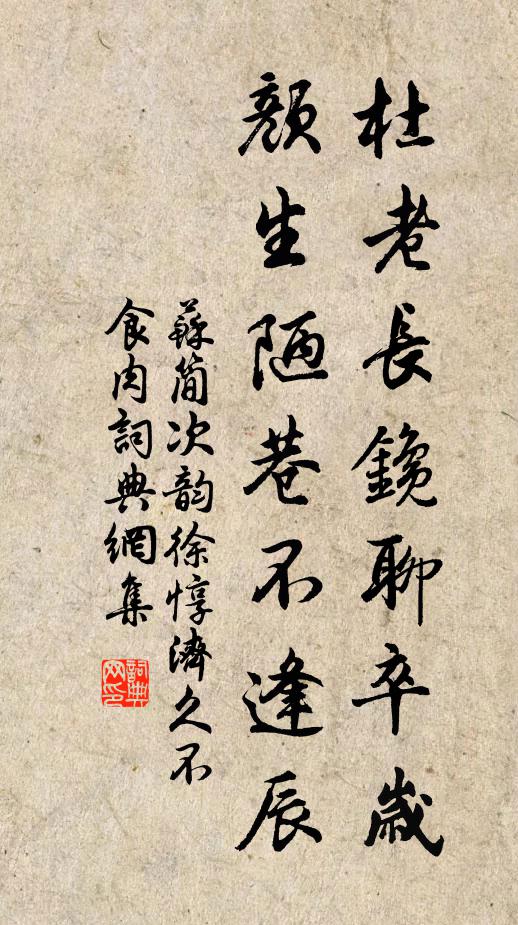 杜老長鑱聊卒歲
顏生陋巷不逢辰
蘇簡次韵徐惇濟久不
食肉詞典網集
詞典網印